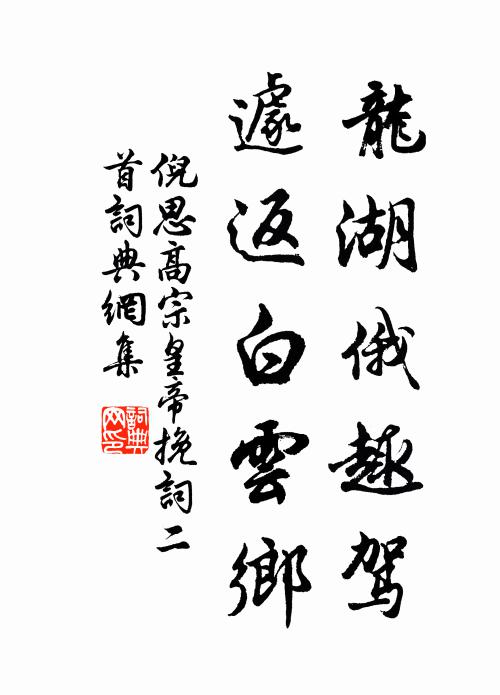 龍湖俄趣駕
遽返白雲鄉
倪思高宗皇帝挽詞二
首詞典網集
詞典
网印